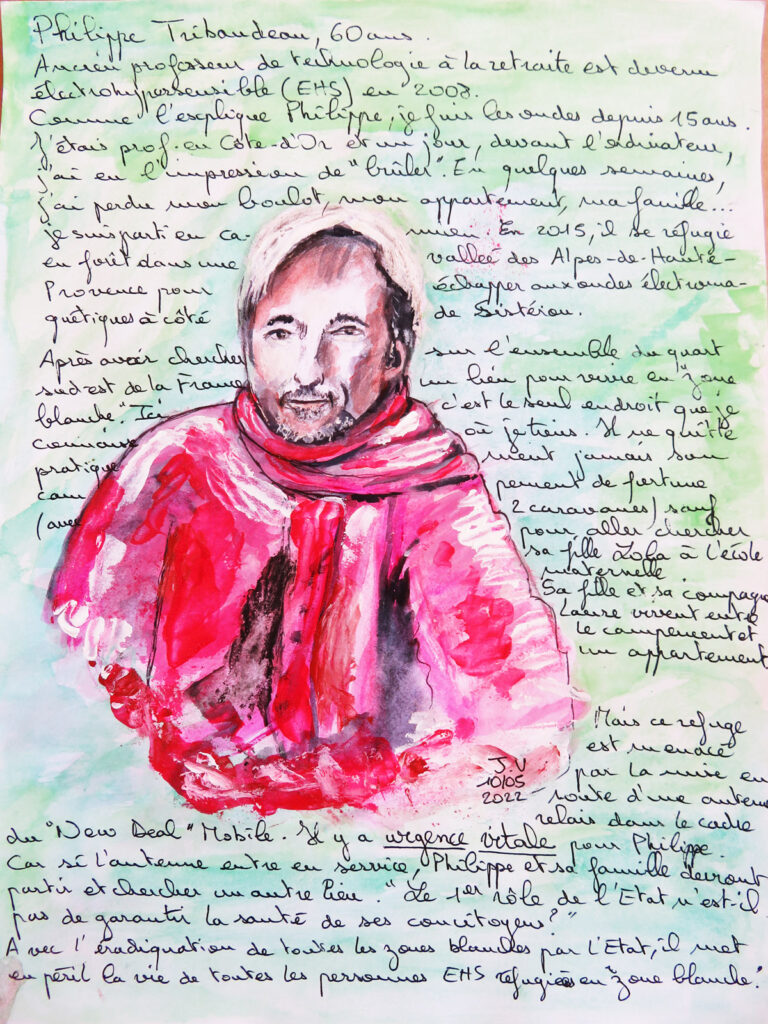 Philippe Tribaudeau, 60 ans.
Ancien professeur de technologie à la retraite est devenu
électrohypersensible (EHS) en 2008.
Comme l'explique Philippe, je fuis les ondes depuis 15 ans.
J'étais prof en Côte-d'Or et un jour, devant l'ordinateur,
j'ai eu l'impression de "brûler". En quelques semaines,
j'ai perdu mon boulot, mon appartement, ma famille...
je suis parti en ca- mion. En 2015, il se réfugie
en forêt dans une vallée des Alpes-de-Haute-
Provence pour échapper aux ondes électroma-
gnétiques à côté de Sistéron.
Après avoir chercher sur l'ensemble du quart
sud-est de la France un lieu pour vivre en "zone
blanche." Ici c'est le seul endroit que je
connaisse où je tiens. Il ne quitte
pratique ment jamais son
cam pement de fortune
(avec 2 caravanes) sauf
pour aller chercher
sa fille Lola à l'école
maternelle
Sa fille et sa compagne
Laure vivent entre
le campement et
un appartement
Mais ce refuge
est menacé
par la mise en
J.V
10/05
2022
route d'une antenne
relais dans le cadre
du "New Deal" Mobile. Il y a urgence vitale pour Philippe.
Car si l'antenne entre en service, Philippe et sa famille devront
partir et chercher un autre lieu. "Le 1er rôle de l'Etat n'est-il
pas de garantir la santé de ses concitoyens?"
Avec l'éradiquation de toutes les zones blanches par l'Etat, il met
en péril la vie de toutes les personnes EHS réfugiées en "zone blanche".